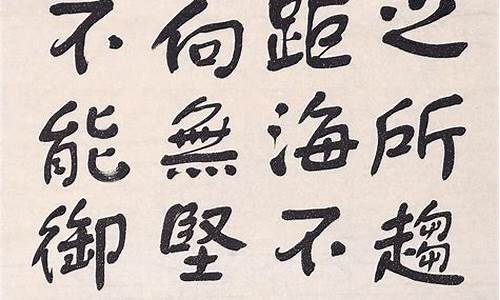 之所趨
距海不
向無堅
不能御